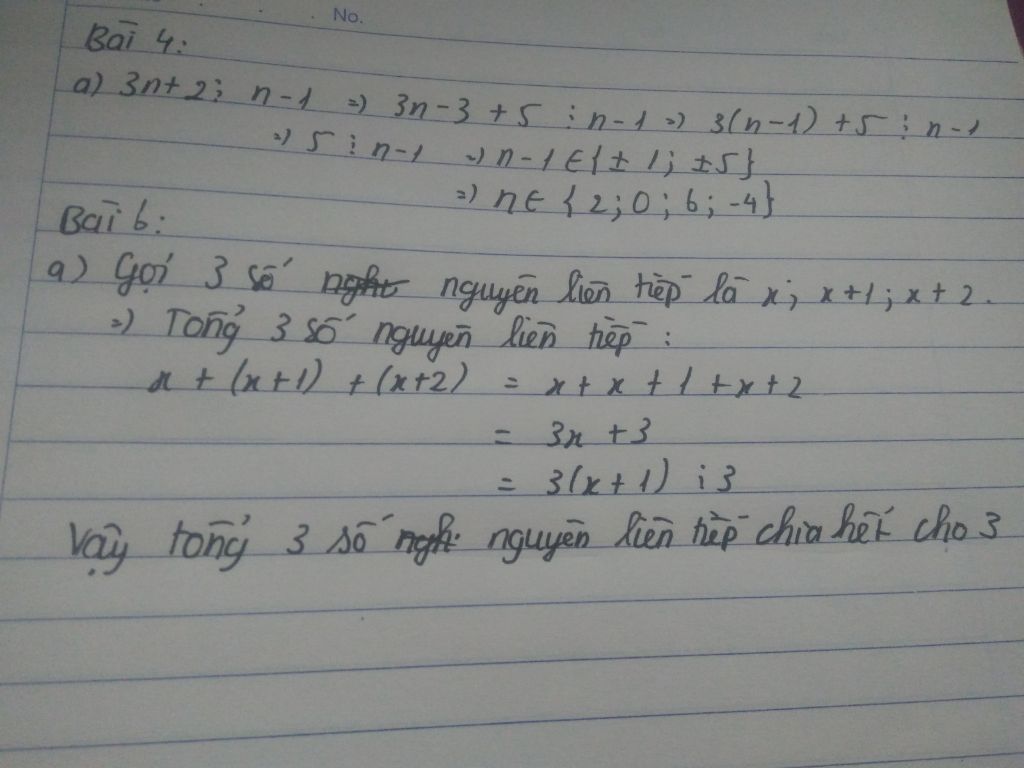 No.
Bài 4:
a) 3n+2 ⋮ n-1 => 3n-3+5 ⋮ n-1 => 3(n-1)+5 ⋮ n-1
=> 5 ⋮ n-1 => n-1 ∈ {±1; ±5}
=> n ∈ {2; 0; 6; -4}
Bài 6:
a) Gọi 3 số nguyên liên tiếp là x; x+1; x+2.
=> Tổng 3 số nguyên liên tiếp:
x + (x+1) + (x+2) = x + x + 1 + x + 2
= 3x + 3
= 3(x+1) ⋮ 3
Vậy tổng 3 số nguyên liên tiếp chia hết cho 3